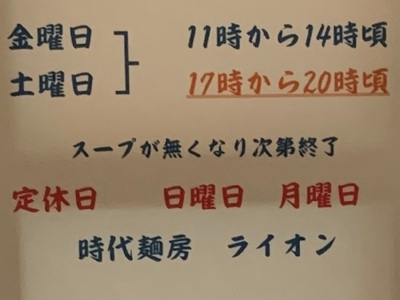 金曜日 11時から14時頃
土曜日 17時から20時頃
スープが無くなり次第終了
定休日 日曜日 月曜日
時代麺房 ライオン